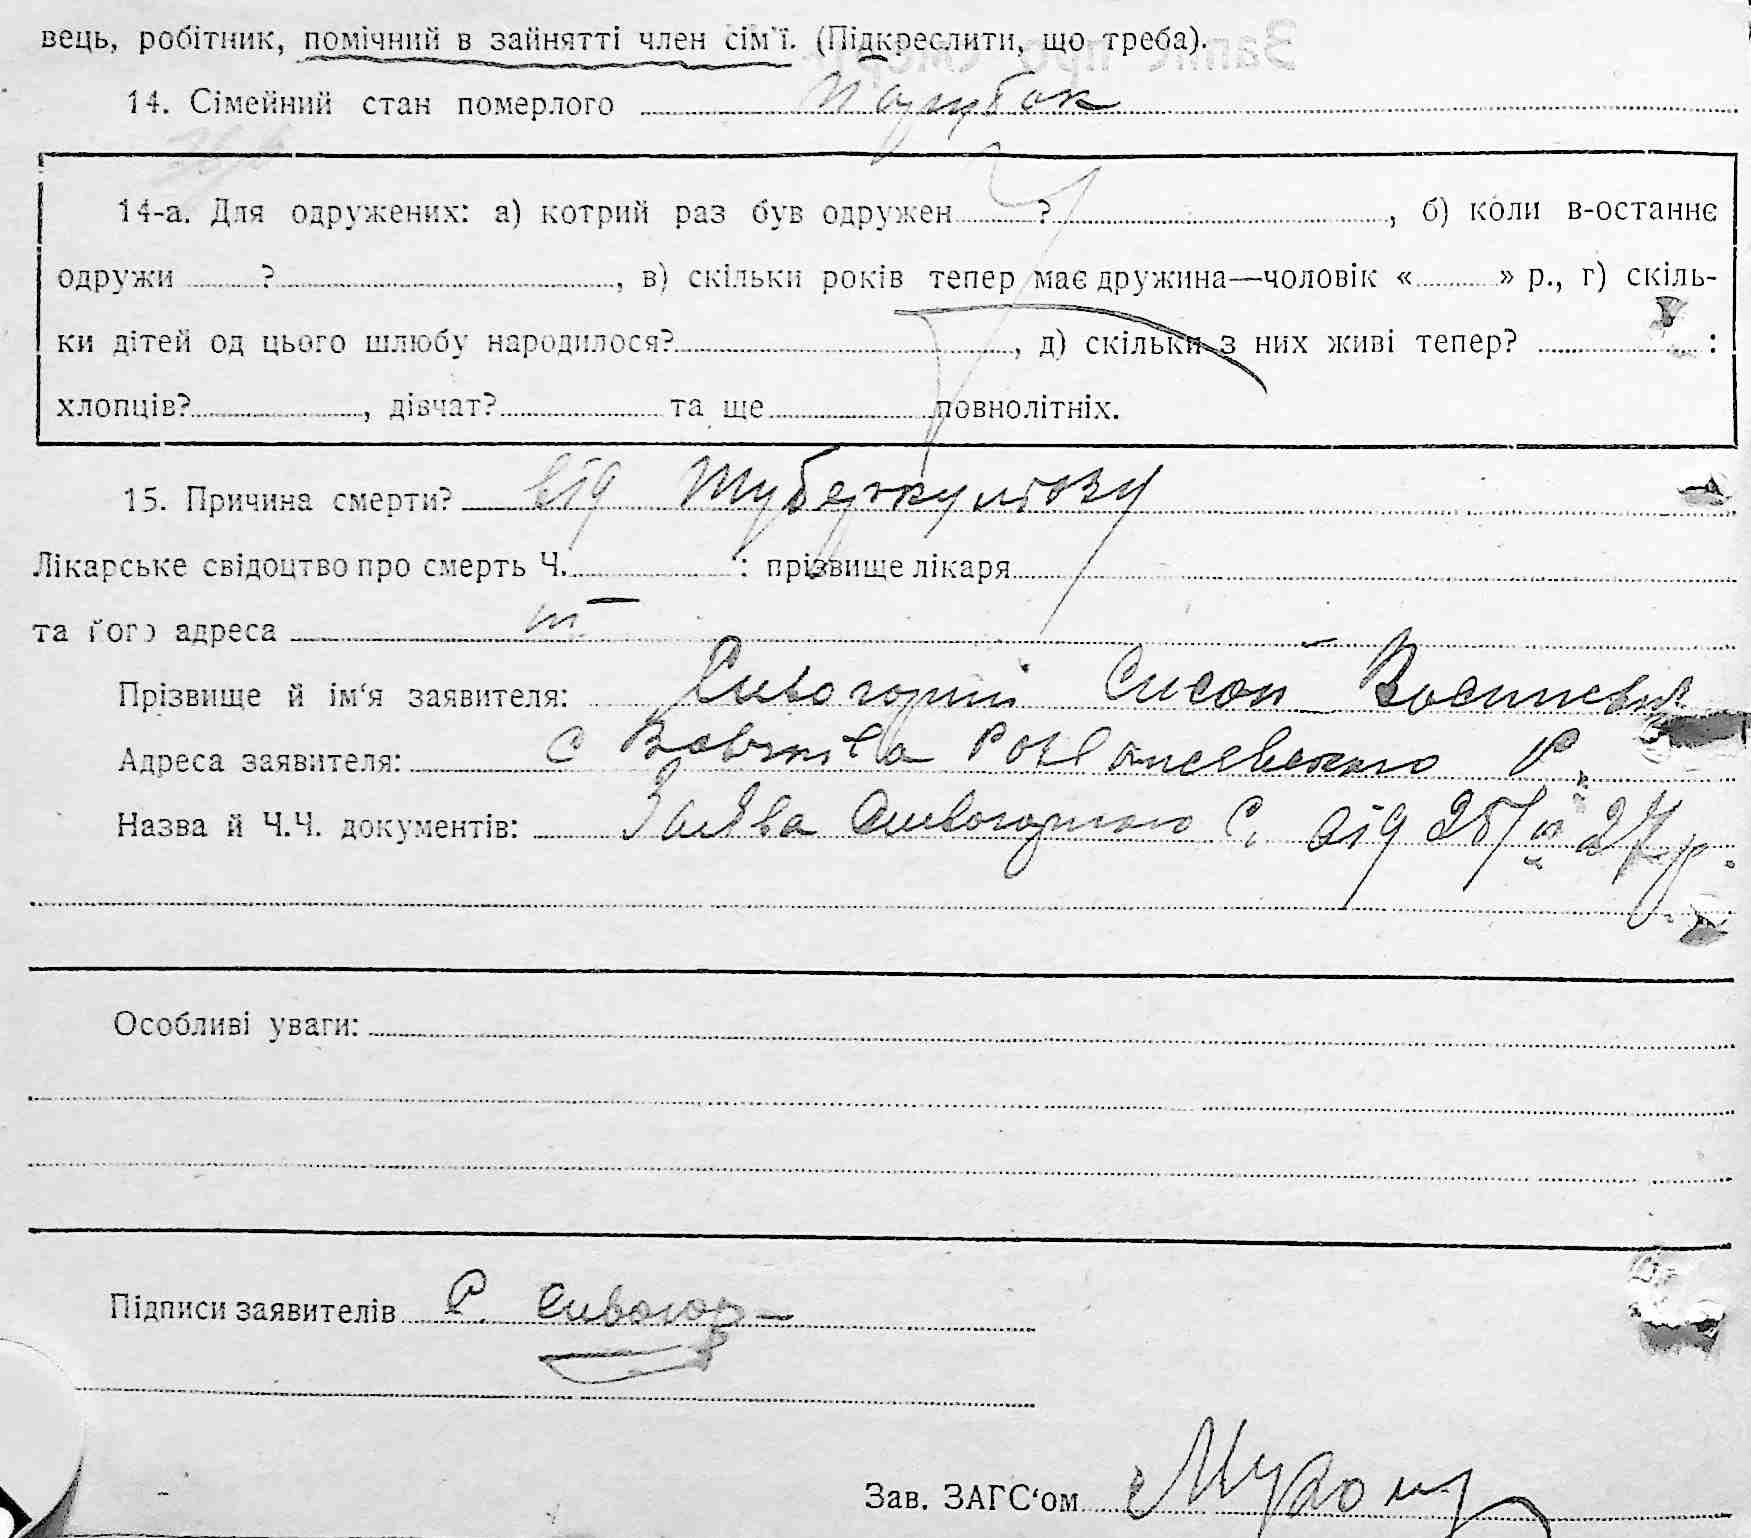 вець, робітник, помічний в зайнятті член сім'ї. (Підкреслити, що треба).
14. Сімейний стан померлого парубок
14-а. Для одружених: а) котрий раз був одружен ?, б) коли в-останнє
одружи ?, в) скільки років тепер має дружина—чоловік « » р., г) скіль-
ки дітей од цього шлюбу народилося?, д) скільки з них живі тепер? :
хлопців?, дівчат? та ще повнолітніх.
15. Причина смерти? від туберкульозу
Лікарське свідоцтво про смерть Ч. : прізвище лікаря
та його адреса
Прізвище й ім'я заявителя: Сивогорний Сисой
Адреса заявителя: с
Назва й Ч.Ч. документів: Заява Сивогорного С. від 27 р.
Особливі уваги:
Підписи заявителів Сивогор
Зав. ЗАГС'ом